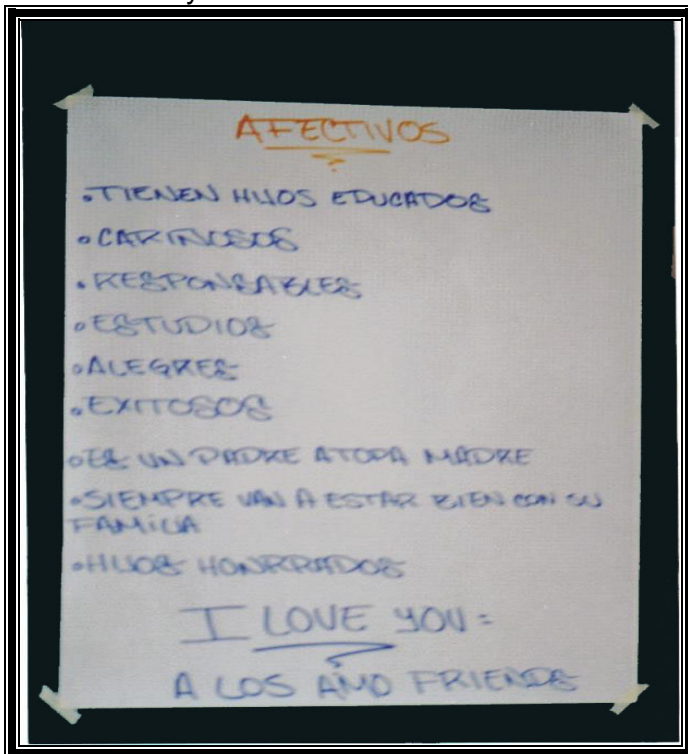 AFECTIVOS
•TIENEN HIJOS EDUCADOS
•CARIÑOSOS
•RESPONSABLES
•ESTUDIOS
•ALEGRES
•EXITOSOS
•ES UN PADRE A TODA MADRE
•SIEMPRE VAN A ESTAR BIEN CON SU
FAMILIA
•HIJOS HONRRADOS
I LOVE YOU =
A LOS AMO FRIENDS